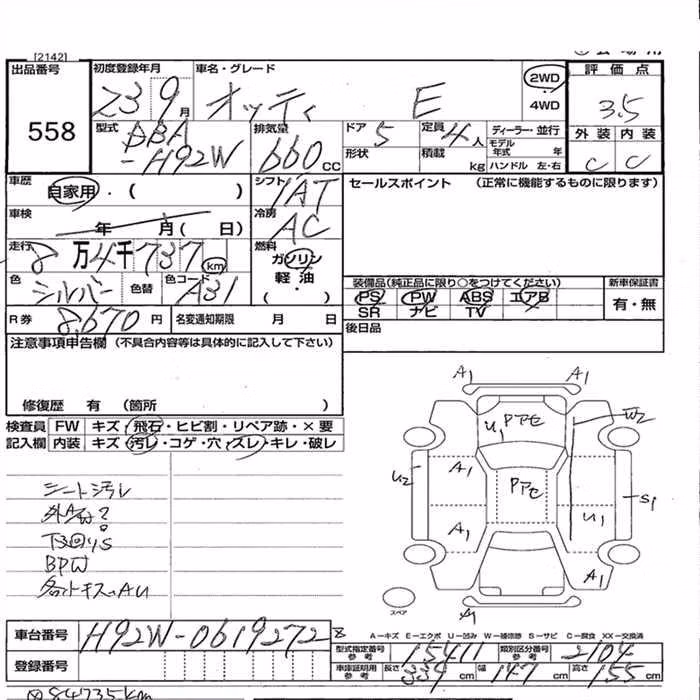 [2142]
出品番号 初度登録年月 車名・グレード 2WD 評価点
558 23 9月 オッティ E 4WD 3.5
型式 DBA-H92W 排気量 660 CC ドア 5 定員 4人 ディーラー・並行 外装 内装
形状 積載 kg モデル年式 年式 ハンドル 左・右 C C
車歴 自家用・( ) シフト IAT セールスポイント (正常に機能するものに限ります)
車検 年 月( 日) 冷房 AC
走行 8万4千737km 燃料 ガソリン 軽・油 ・( )
色 シルバー 色替 色コード A31 装備品(純正品に限り○をつけてください) 新車保証書
PS PW ABS エアB 有・無
SR ナビ TV
R券 8,670円 名変通知期限 月 日 後日品
注意事項申告欄 (不具合内容等は具体的に記入して下さい)
修復歴 有 (箇所 )
検査員 FW キズ・飛石・ヒビ割・リペア跡・×要
記入欄 内装 キズ・汚レ・コゲ・穴・スレ・キレ・破レ
シート汚レ
下回りS
BPW
各小キズ、AU
A1 A1
U1 アセ W2
A1 U2 アセ S1
A1 U1
A1
スペア A1
A−キズ E−エクボ U−凹み W−補修跡 S−サビ C−腐食 XX−交換済
車台番号 H92W-0619272 8 型式指定番号 参考 15411 類別区分番号 参考 2104
登録番号 車庫証明用 参考 長さ 339cm 幅 147cm 高さ 155cm
84735km